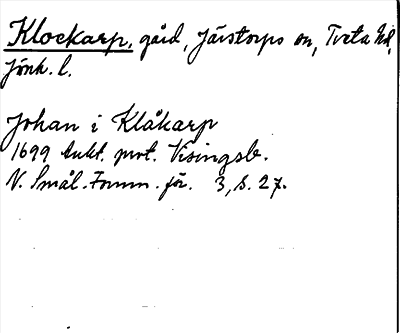 Klockarp, gård, Järstorps sn, Tveta hd,
Jönk. l.
Johan i Klåkarp
1699 Aukt. prot. Visingsb.
N. Smål. Fornm. för. 3, s. 27.